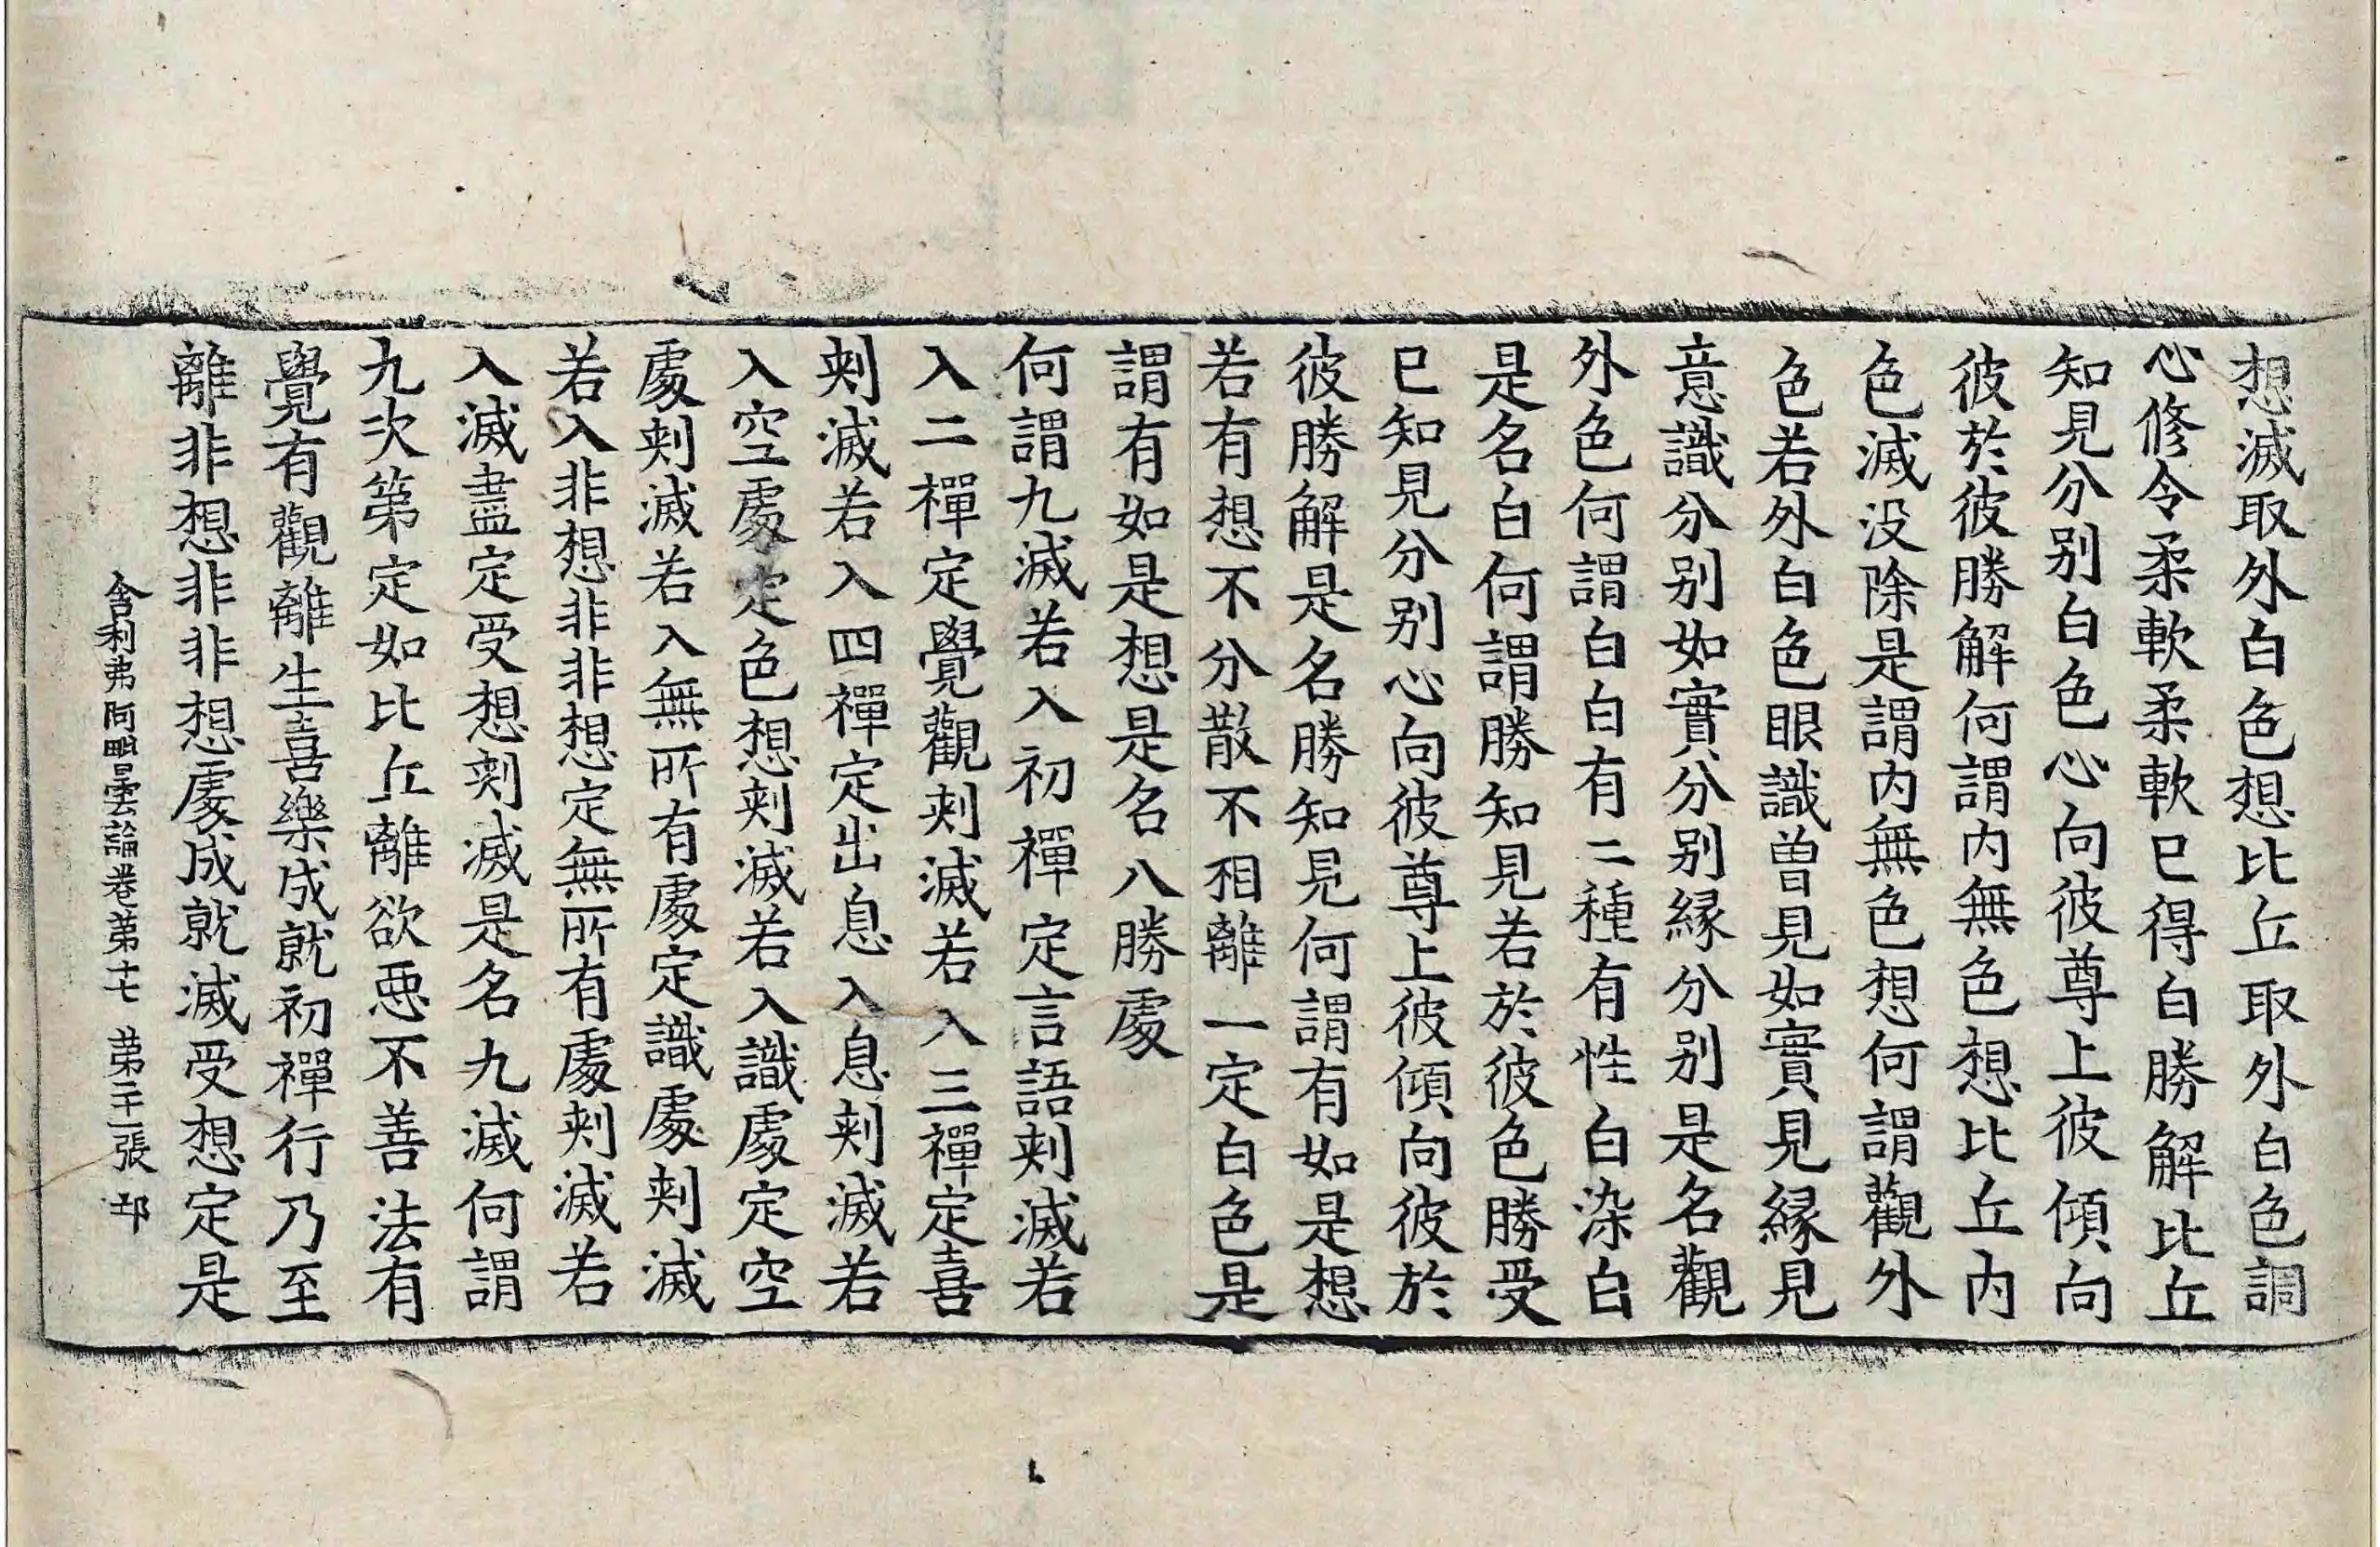 想滅取外白色想比丘取外白色調
心修令柔軟柔軟已得白勝解比丘
知見分别白色心向彼尊上彼傾向
彼於彼勝解何謂内無色想比丘内
色滅没除是謂内無色想何謂觀外
色若外白色眼識曽見如實見縁見
意識分别如實分别縁分别是名觀
外色何謂白白有二種有性白染白
是名白何謂勝知見若於彼色勝受
已知見分别心向彼尊上彼傾向彼於
彼勝解是名勝知見何謂有如是想
若有想不分散不相離一定白色是
謂有如是想是名八勝處
何謂九滅若入初禪定言語刾滅若
入二禪定覺觀刾滅若入三禪定喜
刾滅若入四禪定出息入息刾滅若
入空處定色想刾滅若入識處定空
處刾滅若入無所有處定識處刾滅
若入非想非非想定無所有處刾滅若
入滅盡定受想刾滅是名九滅何謂
九次第定如比丘離欲惡不善法有
覺有觀離生喜樂成就初禪行乃至
離非想非非想處成就滅受想定是
舍利弗阿毗曇論卷第十七 第二十二張